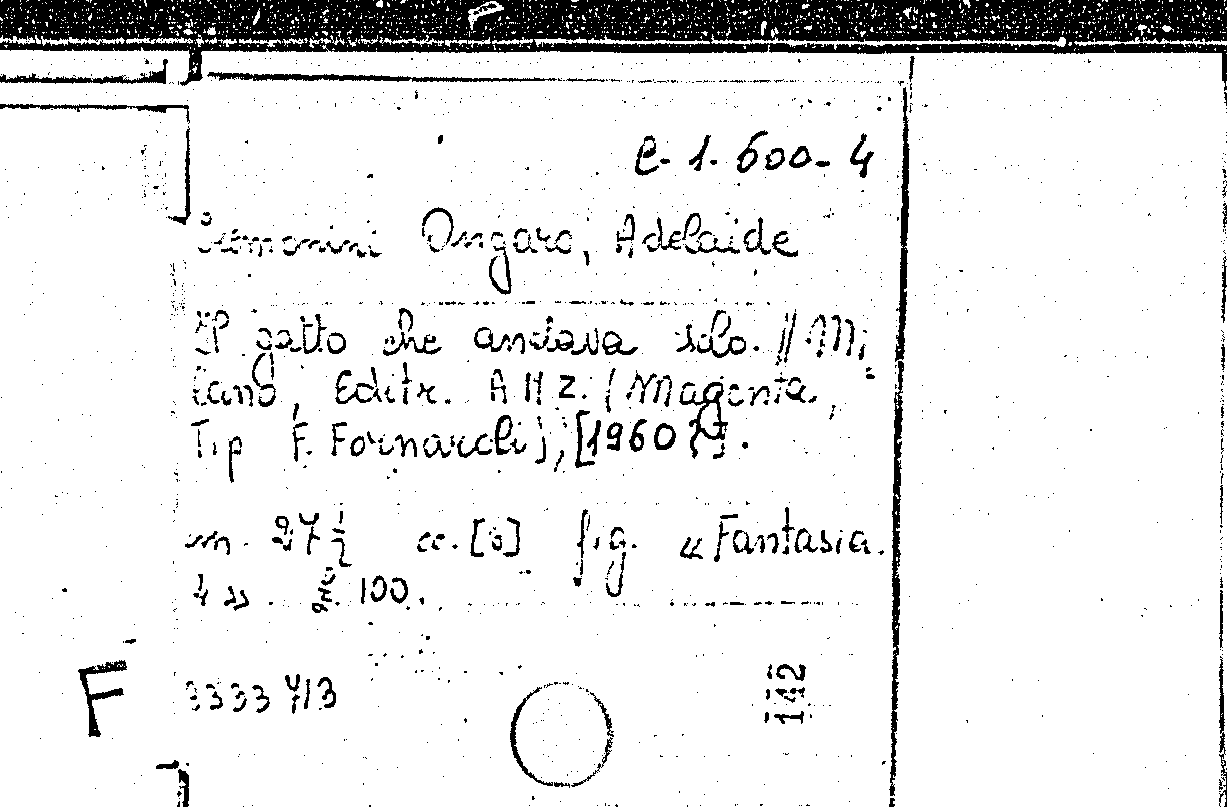 C. 1. 600-4
Ongaro, Adelaide
Il gatto che andava solo. // Mi=
lano, Editr. A M Z. (Magenta,
Tip F. Fornaroli), [1960?].
cm. 27 1/2 cc. [6] fig. «Fantasia.
4 » 100.
F 3333 713
142